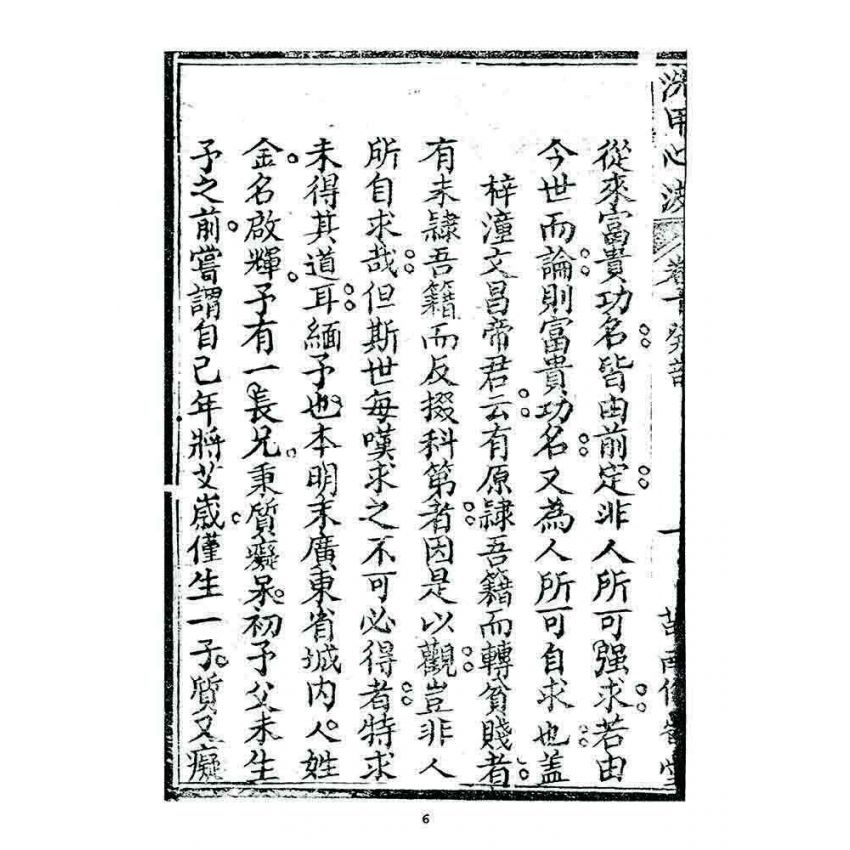 洗甲心波 卷十
從來富貴功名皆由前定非人所可强求若由
今世而論則富貴功名又為人所可自求也盖
梓潼文昌帝君云有原隸吾籍而轉貧賤者
有未隸吾籍而反掇科第者因是以觀豈非人
所自求哉但斯世每嘆求之不可必得者特求
未得其道耳緬予也本明末廣東省城内人姓
金名啟輝予有一長兄秉質癡呆初予父未生
予之前嘗謂自己年將艾歲僅生一子質又癡
6